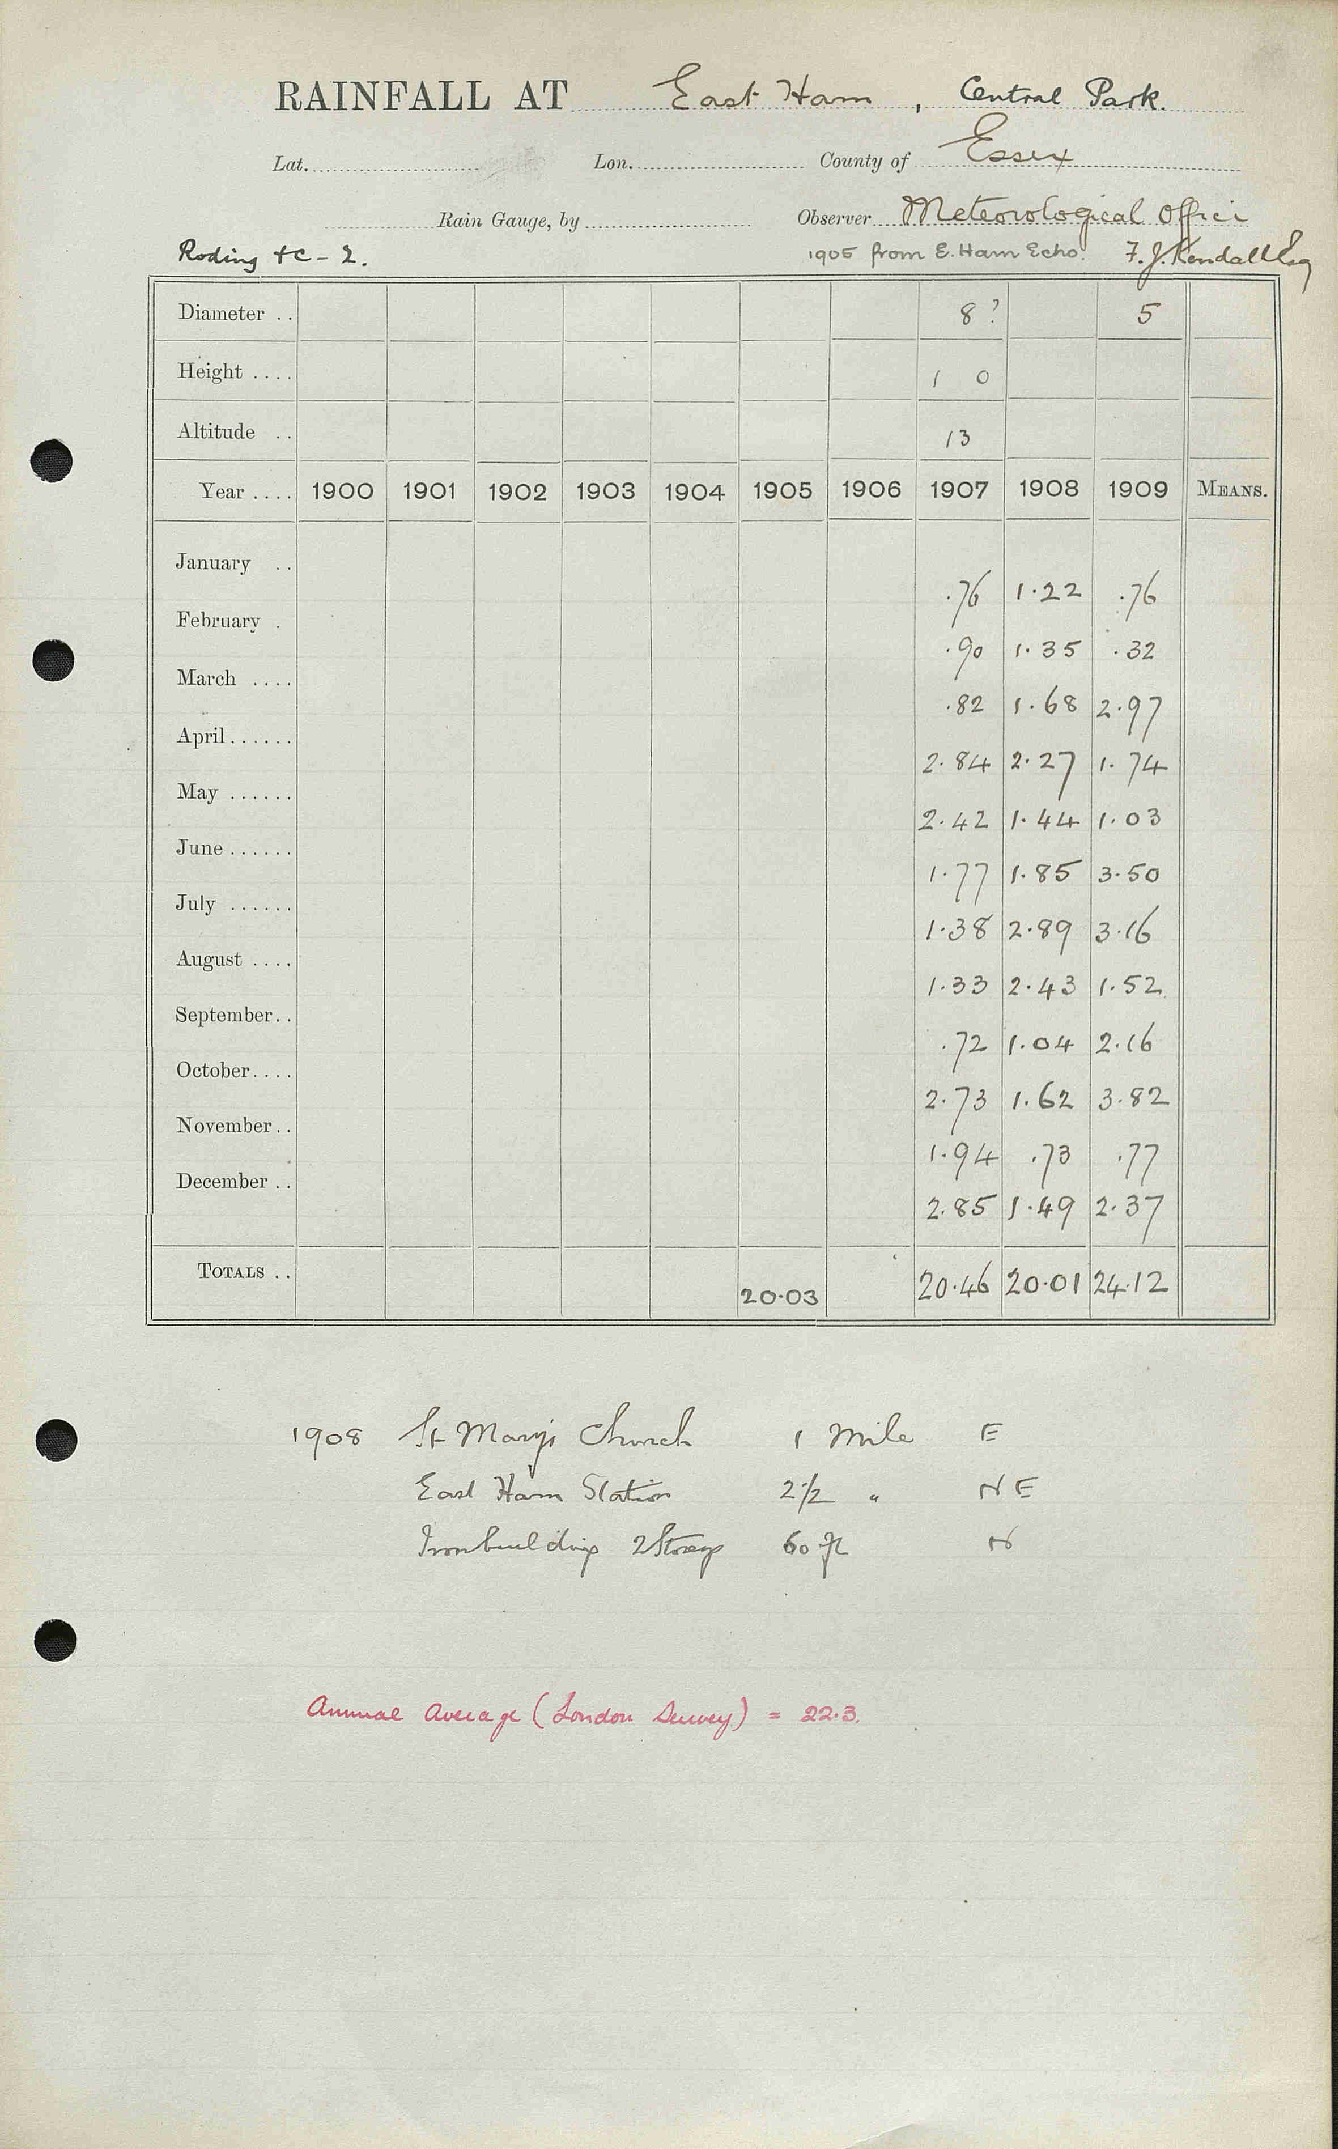 RAINFALL AT East Ham, Central Park.
Lat. Lon. County of Essex
Rain Gauge, by Observer Meteorological Office
Roding &c - 2. 1905 from E. Ham Echo. F. J. Kendall Esq
Diameter .. 8? 5
Height .... 1 0
Altitude .. 13
Year .... 1900 1901 1902 1903 1904 1905 1906 1907 1908 1909 MEANS.
January .. .76 1.22 .76
February . .90 1.35 .32
March .... .82 1.68 2.97
April...... 2.84 2.27 1.74
May ...... 2.42 1.44 1.03
June ...... 1.77 1.85 3.50
July ...... 1.38 2.89 3.16
August .... 1.33 2.43 1.52
September.. .72 1.04 2.16
October.... 2.73 1.62 3.82
November.. 1.94 .73 .77
December .. 2.85 1.49 2.37
TOTALS .. 20.03 20.46 20.01 24.12
1908 St Marys Church 1 Mile E
East Ham Station 2 1/2 " NE
Iron building 2 Storeys 60 ft N
Annual Average (London Survey) = 22.3.